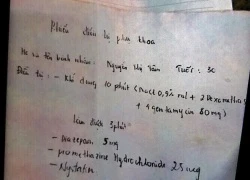 Phiếu điều trị phụ khoa
Họ và tên bệnh nhân: Nguyễn Thị Vân Tuổi: 30
Điều trị: - Khí dung 10 phút (NaCl 0,9% + 2 Dexametha
+ 1 gentamycin 80mg)
Làm 3 phút
- Diazepam 5mg
- promethazine Hydrochloride 25mg
- Nystatin